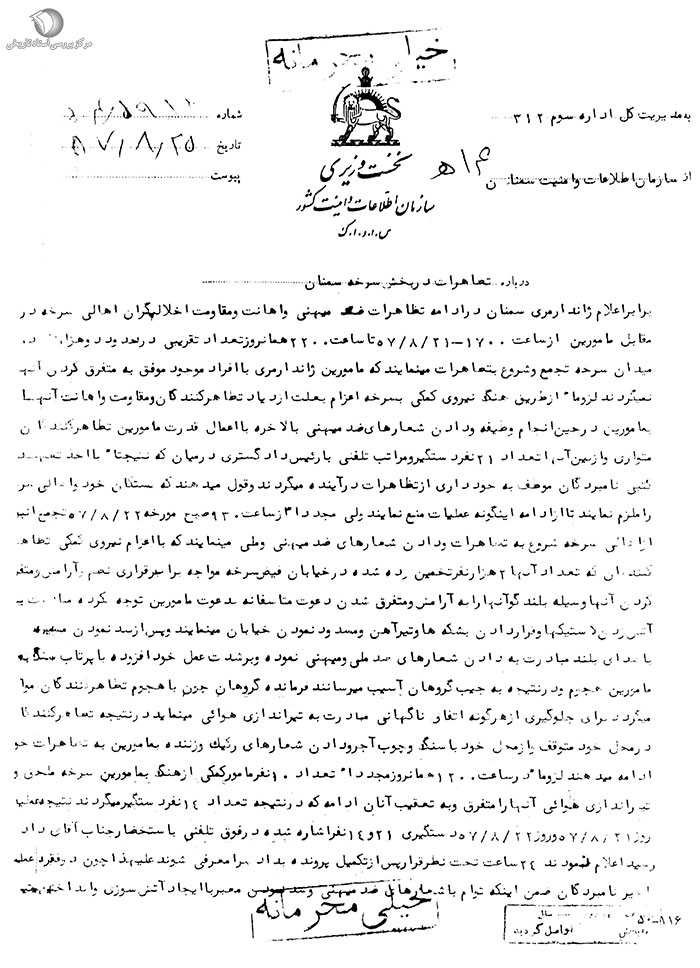 مرکز بررسی اسناد تاریخی
خیلی محرمانه
به مدیریت کل اداره سوم ۳۱۲
شماره
تاریخ ۵۷/۸/۲۵
پیوست
از سازمان اطلاعات و امنیت سمنان
۱۶ ه
نخست وزیری
سازمان اطلاعات و امنیت کشور
س.ا.و.ا.ک
درباره تظاهرات در بخش سرخه سمنان
برابر اعلام ژاندارمری سمنان در ادامه تظاهرات ضد میهنی و اهانت و مقاومت اخلالگران اهالی سرخه در
مقابل مامورین از ساعت ۱۷۰۰-۵۷/۸/۲۱ تا ساعت ۲۲۰۰ همانروز تعداد تقریبی در حدود دو هزار
میدان سرخه تجمع و شروع بتظاهرات مینمایند که مامورین ژاندارمری با افراد موجود موفق به متفرق کردن آنها
نمیگردند لزوماً از طریق هنگ نیروی کمکی بسرخه اعزام بعلت ازدیاد تظاهر کنندگان و مقاومت و اهانت آنها
بمامورین در حین انجام وظیفه و دادن شعارهای ضد میهنی بالاخره با اعمال قدرت مامورین تظاهر کنندگان
متواری و از بین آنها تعداد ۲۱ نفر دستگیر و مراتب تلفنی با رئیس دادگستری در میان که نتیجتاً با اخذ تعهد
کتبی نامبردگان موظف به خودداری از تظاهرات در آینده میگردند و قول میدهند که بستگان خود و اهالی
را ملزم نمایند تا از ادامه اینگونه عملیات منع نمایند ولی مجدداً از ساعت ۹۳۰ صبح مورخه ۵۷/۸/۲۲ تجمع
از اهالی سرخه شروع به تظاهرات و دادن شعارهای ضد میهنی و ملی مینمایند که با اعزام نیروی کمکی
کنندگان که تعداد آنها ۲ هزار نفر تخمین زده شده در خیابان فیض سرخه مواجه برا برقراری نظم و آرامش و
کردن آنها وسیله بلندگو آنها را به آرامش و متفرق شدن دعوت متاسفانه بدعوت مامورین توجه نکرده
آتش زدن لاستیکها و قرار دادن بشکه ها و تیرآهن و مسدود نمودن خیابان مینمایند و پس از سد نمودن
با صدای بلند مبادرت به دادن شعارهای ضد ملی و میهنی نموده و بر شدت عمل خود افزوده با پرتاب سنگ به
مامورین هجوم و در نتیجه به جیپ گروهان آسیب میرسانند فرمانده گروهان چون با هجوم تظاهر کنندگان
میگردد برای جلوگیری از هرگونه اتفاق ناگهانی مبادرت به تیراندازی هوائی مینماید در نتیجه تظاهر کنندگان
در محل خود متوقف و از محل خود با سنگ و چوب آجر و دادن شعارهای رکیک و زننده بمامورین به تظاهرات
ادامه میدهند لزوماً در ساعت ۱۲۰۰ همانروز مجدداً تعداد ۱۰ نفر مامور کمکی از هنگ بمامورین سرخه ملحق و
تیراندازی هوائی آنها را متفرق و به تعقیب آنان ادامه که در نتیجه تعداد ۱۴ نفر دستگیر میگردند نتیجه
روز ۵۷/۸/۲۱ و روز ۵۷/۸/۲۲ دستگیری ۲۱ و ۱۴ نفر اشاره شده در فوق تلفنی باستحضار جناب آقای
رسید اعلام نمودند ۲۴ ساعت تحت نظر قرار پس از تکمیل پرونده بدادسرا معرفی شوند علیهذا چون در
اخیر نامبردگان ضمن اینکه توام با شعارهای ضد میهنی و سد نمودن معبر با ایجاد آتش سوزی و
خیلی محرمانه
۵۰-۸۱۶